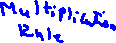 Multiplication
Rule